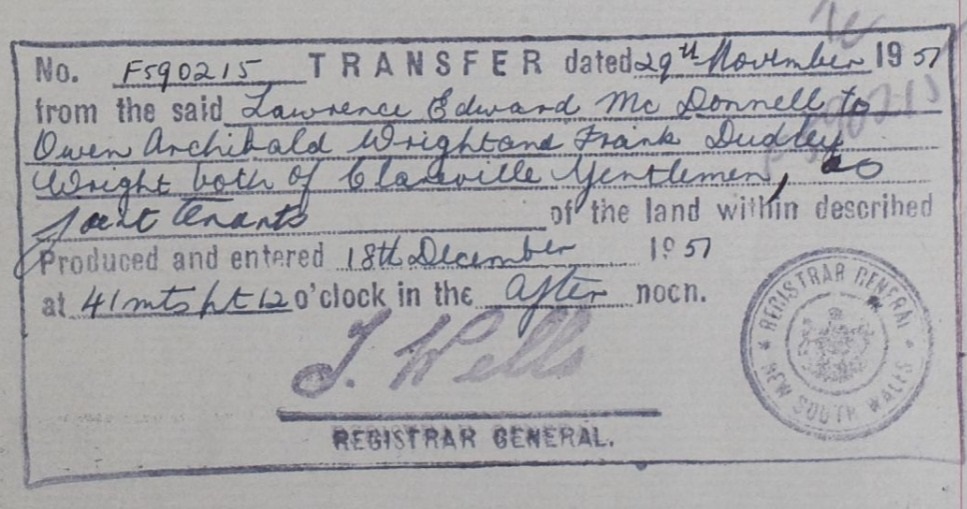 No. F590215 TRANSFER dated 29th November 1951
from the said Lawrence Edward Mc Donnell to
Owen Archibald Wright and Frank Dudley
Wright both of Clareville Gentlemen, as
joint tenants of the land within described
Produced and entered 18th December 1951
at 41 mts pt 12 o'clock in the after noon.
J. Wells
REGISTRAR GENERAL.
REGISTRAR GENERAL
NEW SOUTH WALES